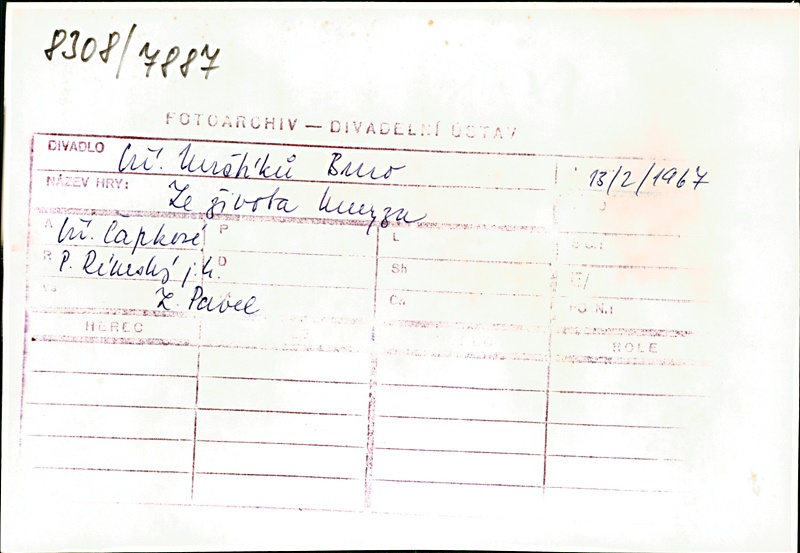 8308/7887
FOTOARCHIV — DIVADELNÍ ÚSTAV
DIVADLO bří. Mrštíků Brno 13/2/1967
NÁZEV HRY: Ze života hmyzu
A bří. Čapkové P L
R P. Rímský j.h. D Sh
Z. Pavel Ch
HEREC ROLE